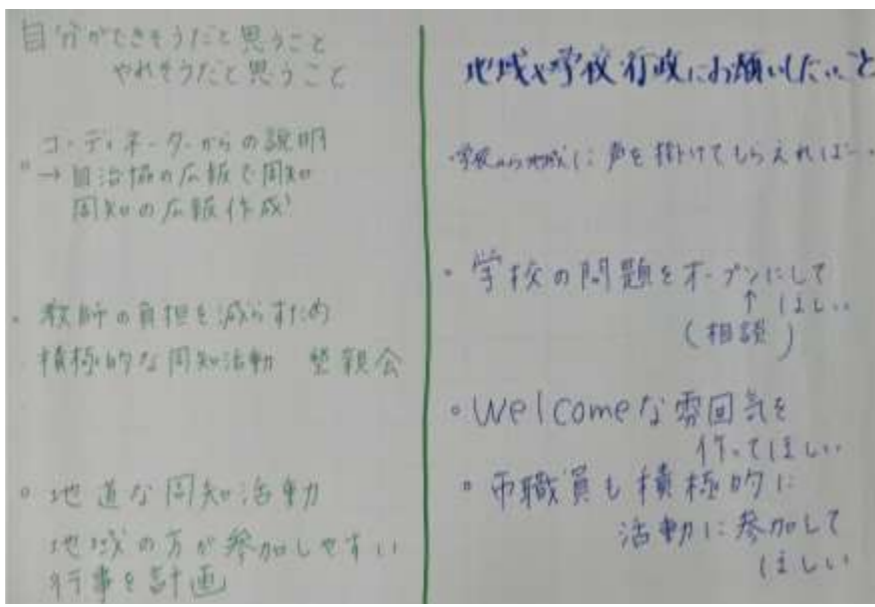 自分ができそうだと思うこと
やれそうだと思うこと
。コーディネーターからの説明
→自治協の広報で周知
周知の広報作成!
・教師の負担を減らすため
積極的な周知活動 懇親会
。地道な周知活動
地域の方が参加しやすい
行事を計画
地域や学校行政にお願いしたいこと
・学校から地域に声を掛けてもらえれば…
・学校の問題をオープンにして
↑ ほしい
(相談)
。Welcomeな雰囲気を
作ってほしい
。市職員も積極的に
活動に参加して
ほしい